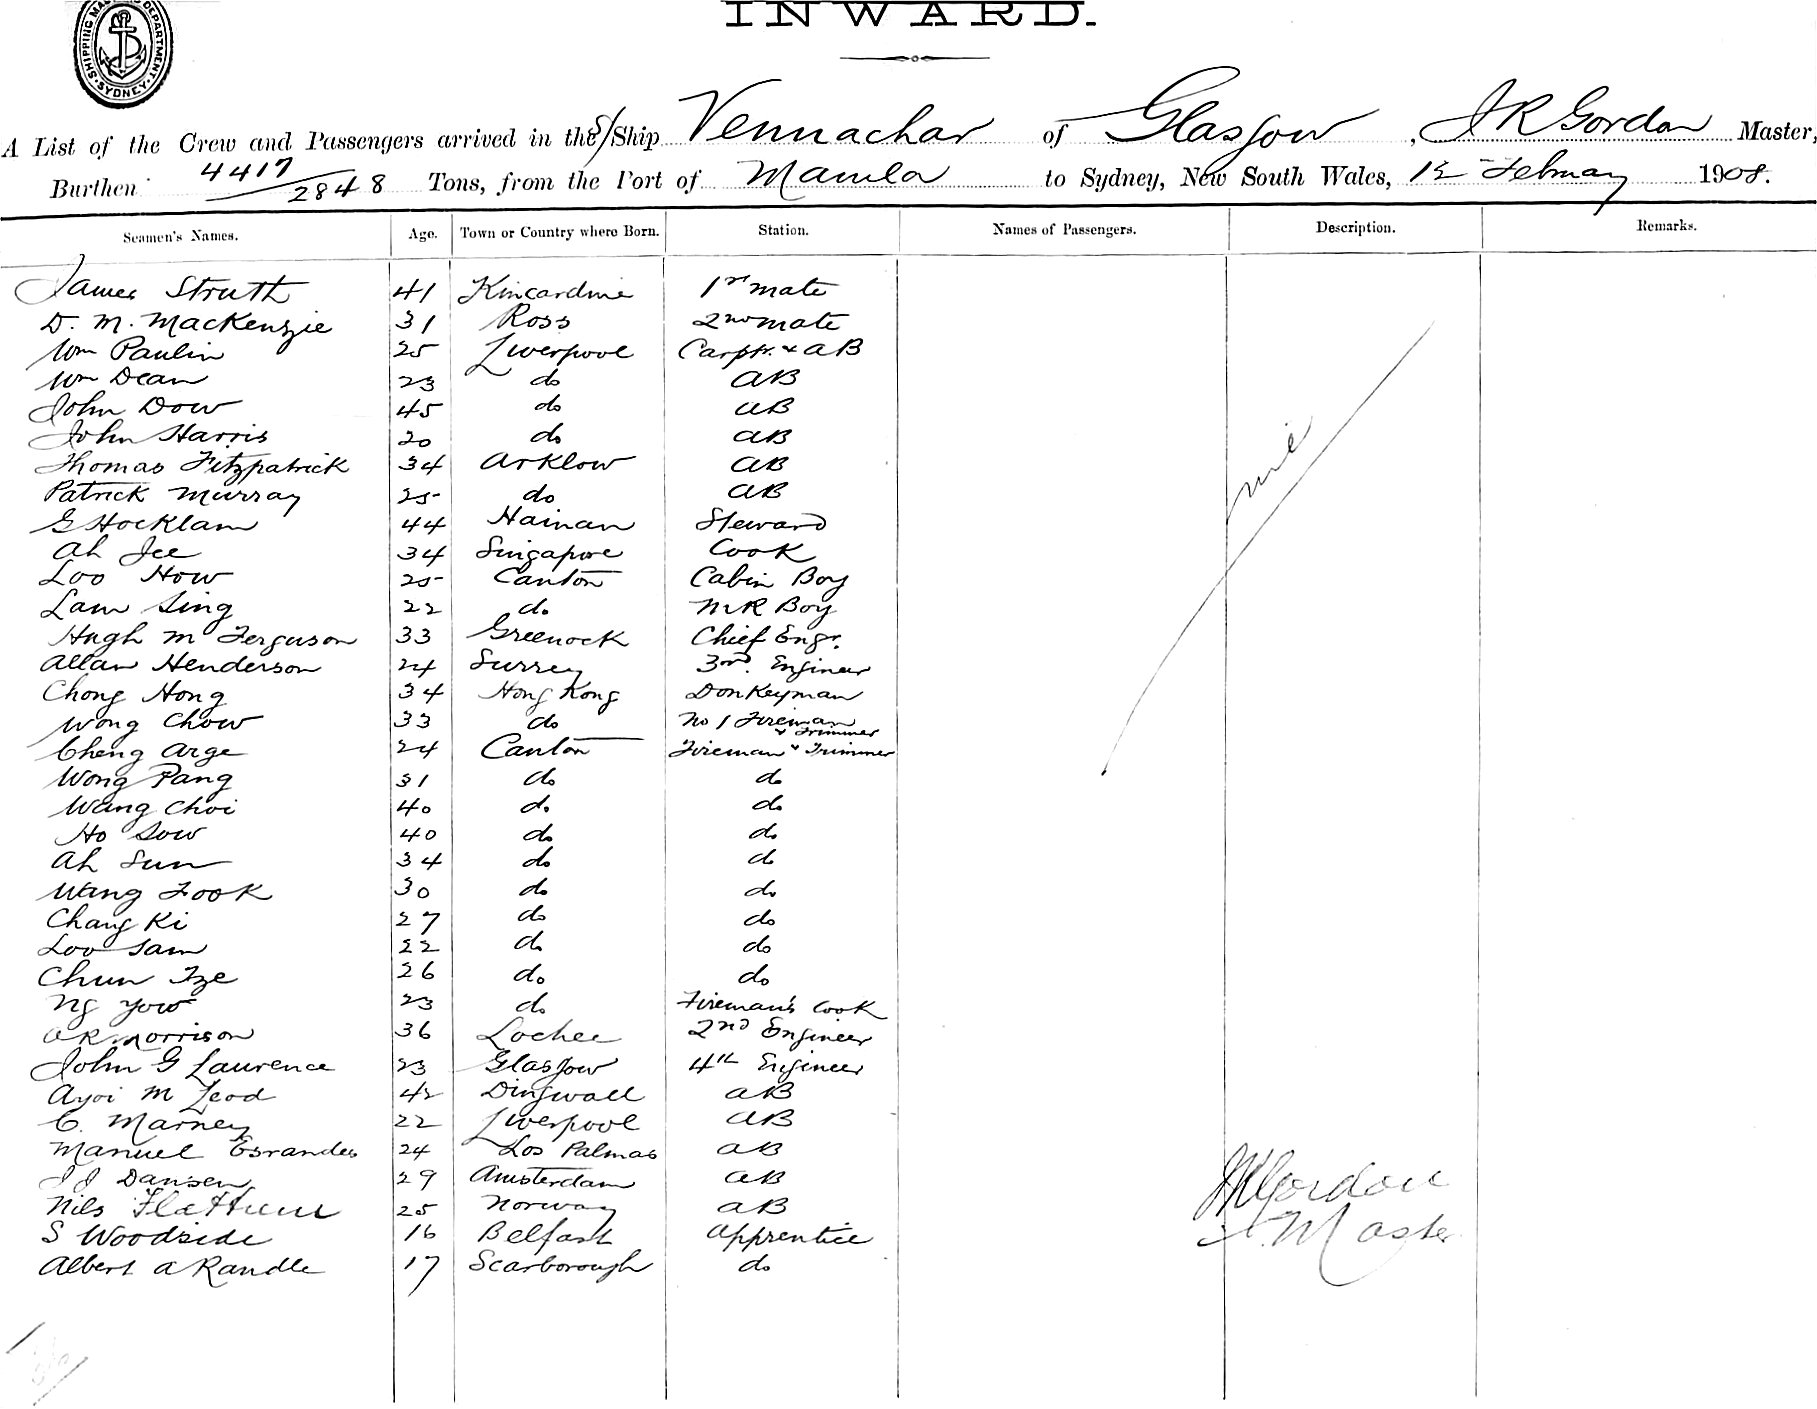 SHIPPING MASTERS DEPARTMENT SYDNEY
INWARD.
A List of the Crew and Passengers arrived in the S/Ship Vennachar of Glasgow, J R Gordon Master,
Burthen 4417/2848 Tons, from the Port of Manila to Sydney, New South Wales, 12 February 1908.
Seamen's Names. Age. Town or Country where Born. Station. Names of Passengers. Description. Remarks.
James Struth 41 Kincardine 1st mate
D. M. MacKenzie 31 Ross 2nd mate
Wm Paulin 25 Liverpool Carptr. & AB
Wm Dean 23 do AB
John Dow 45 do AB
John Harris 20 do AB
Thomas Fitzpatrick 34 Arklow AB
nil
Patrick Murray 25 do AB
G Hocklam 44 Hainan Steward
Ah Jee 34 Singapore Cook
Loo How 25 Canton Cabin Boy
Lam Sing 22 do MR Boy
Hugh M Ferguson 33 Greenock Chief Engr.
Allan Henderson 24 Surrey 3rd. Engineer
Chong Hong 34 Hong Kong Donkeyman
Wong Chow 33 do No 1 Fireman & Trimmer
Cheng Arge 24 Canton Fireman & Trimmer
Wong Pang 31 do do
Wang Choi 40 do do
Ho Sow 40 do do
Ah Sun 34 do do
Wang Fook 30 do do
Chang Ki 27 do do
Loo Sam 22 do do
Chun Tze 26 do do
Ng Yow 23 do Fireman's Cook
A R Morrison 36 Lochee 2nd Engineer
John G Laurence 23 Glasgow 4th Engineer
M Leod 42 Dingwall AB
C. Marney 22 Liverpool AB
Manuel 24 Los Palmas AB
J J Dansen 29 Amsterdam AB
JR Gordon
Nils 25 Norway AB
S Woodside 16 Belfast Apprentice
Master
Albert A Randle 17 Scarborough do